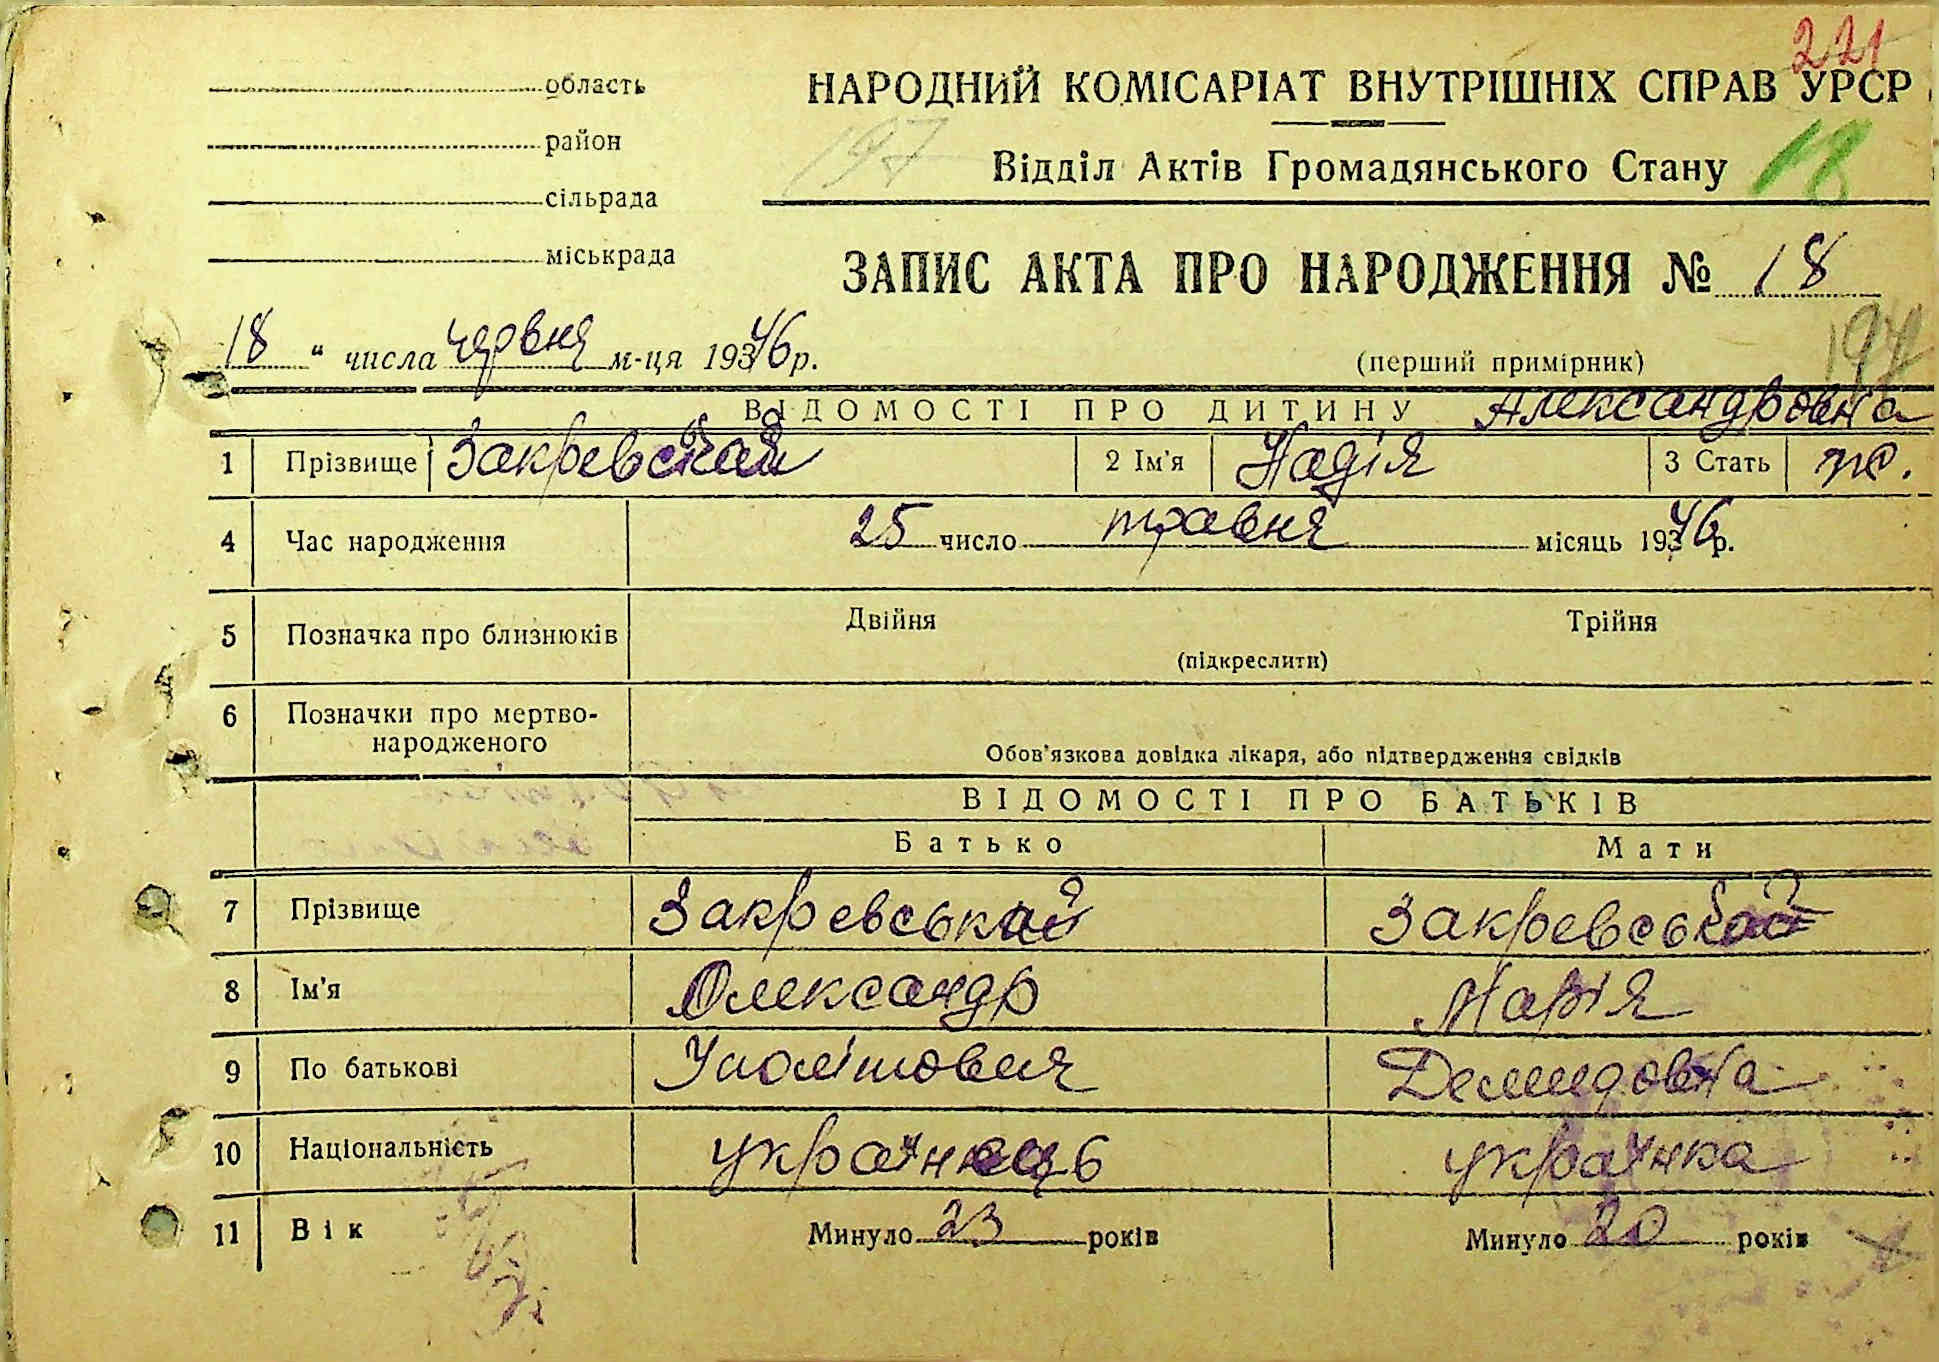 221
область
НАРОДНИЙ КОМІСАРІАТ ВНУТРІШНІХ СПРАВ УРСР
район
197
Відділ Актів Громадянського Стану 18
сільрада
міськрада
ЗАПИС АКТА ПРО НАРОДЖЕННЯ № 18
18 " числа червня м-ця 1946 р.
(перший примірник)
197
ВІДОМОСТІ ПРО ДИТИНУ Александровна
1 Прізвище Закревская 2 Ім'я Надія 3 Стать ж.
4 Час народження 25 число травня місяць 1946 р.
5 Позначка про близнюків Двійня Трійня
(підкреслити)
6 Позначки про мертво-
народженого
Обов'язкова довідка лікаря, або підтвердження свідків
ВІДОМОСТІ ПРО БАТЬКІВ
Батько Мати
7 Прізвище Закревський Закревська
8 Ім'я Олександр Марія
9 По батькові Демидовна
10 Національність українець українка
11 Вік Минуло 23 років Минуло 20 років